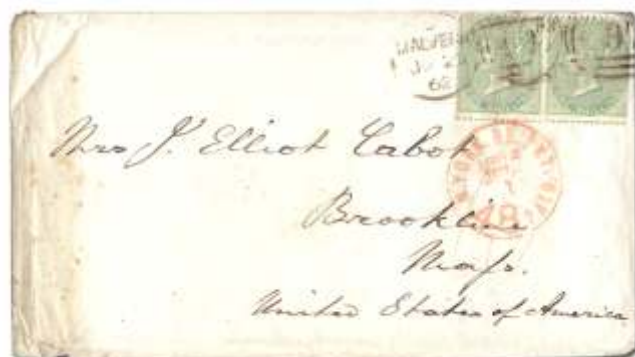 MALVERN
62
Mrs J. Elliot Cabot
Brookline
Mass.
United States of America